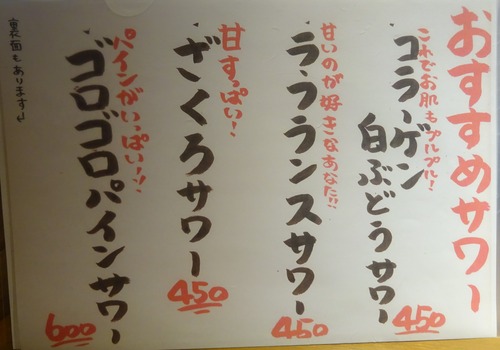 おすすめサワー
これでお肌もプルプル!
・コラーゲン
白ぶどうサワー
450
甘いのが好きなあなた!!
・ラ・フランスサワー
450
甘すっぱい!
・ざくろサワー
450
パインがいっぱい!!
・ゴロゴロパインサワー
600
裏面もあります